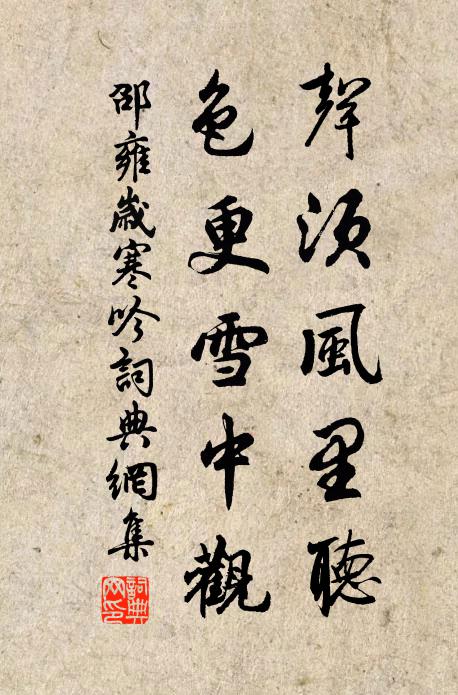 聲須風里聽
色更雪中觀
邵雍歲寒吟詞典網集
詞典網印